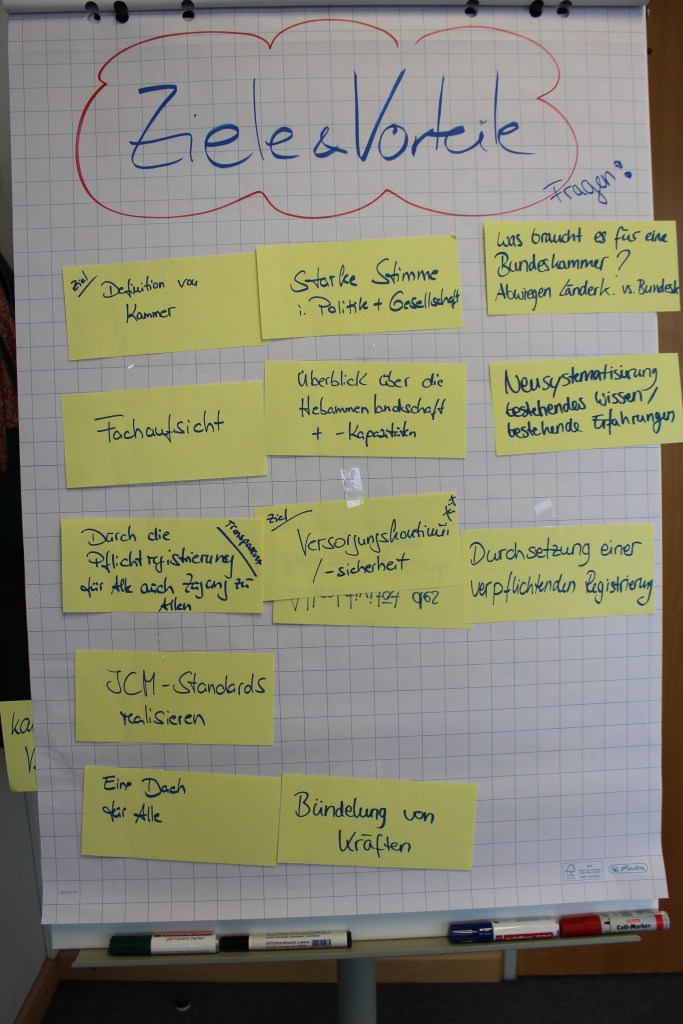 Ziele & Vorteile
Fragen:
Ziel
Definition von
Kammer
Starke Stimme
i. Politik + Gesellschaft
Was braucht es für eine
Bundeskammer?
Abwiegen Länderk. vs. Bundesk
Fachaufsicht
Überblick über die
Hebammenlandschaft
+ -Kapazitäten
Neusystematisierung
bestehendes Wissen/
bestehende Erfahrungen
Durch die
Pflichtregistrierung
für Alle auch Zugang zu
Allen
Transparenz
Ziel
Versorgungskontinui
/-sicherheit
Durchsetzung einer
verpflichtenden Registrierung
ICM-Standards
realisieren
Ein Dach
für Alle
Bündelung von
Kräften